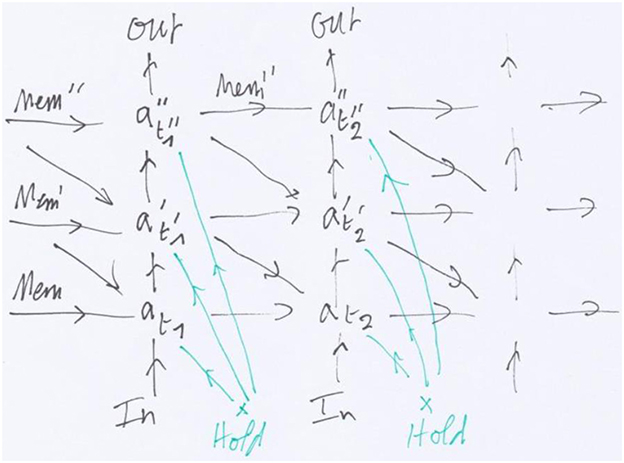 Out Out
Mem'' a''t''1 Mem'' a''t''2
Mem' a't'1 a't'2
Mem at1 at2
In In
x x
Hold Hold